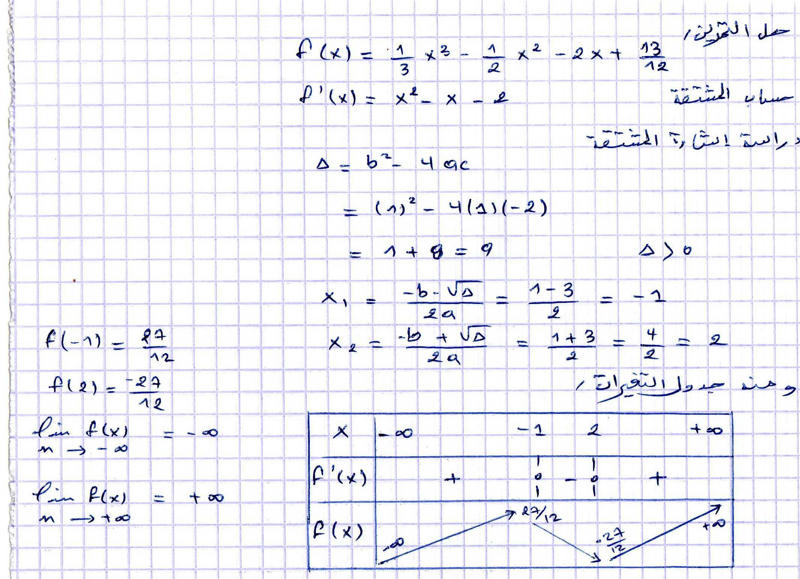 حل التمرين،
f(x) = 1/3 x³ - 1/2 x² - 2x + 13/12
f'(x) = x² - x - 2 حساب المشتقة
دراسة إشارة المشتقة
Δ = b² - 4ac
= (1)² - 4(1)(-2)
= 1 + 8 = 9 Δ > 0
x₁ = (-b-√Δ)/2a = (1-3)/2 = -1
x₂ = (-b+√Δ)/2a = (1+3)/2 = 4/2 = 2
f(-1) = 27/12
f(2) = -27/12
lim f(x) = -∞
n → -∞
lim f(x) = +∞
n → +∞
ومنه جدول التغيرات،
x -∞ -1 2 +∞
f'(x) + 0 - 0 +
f(x) -∞ 27/12 -27/12 +∞